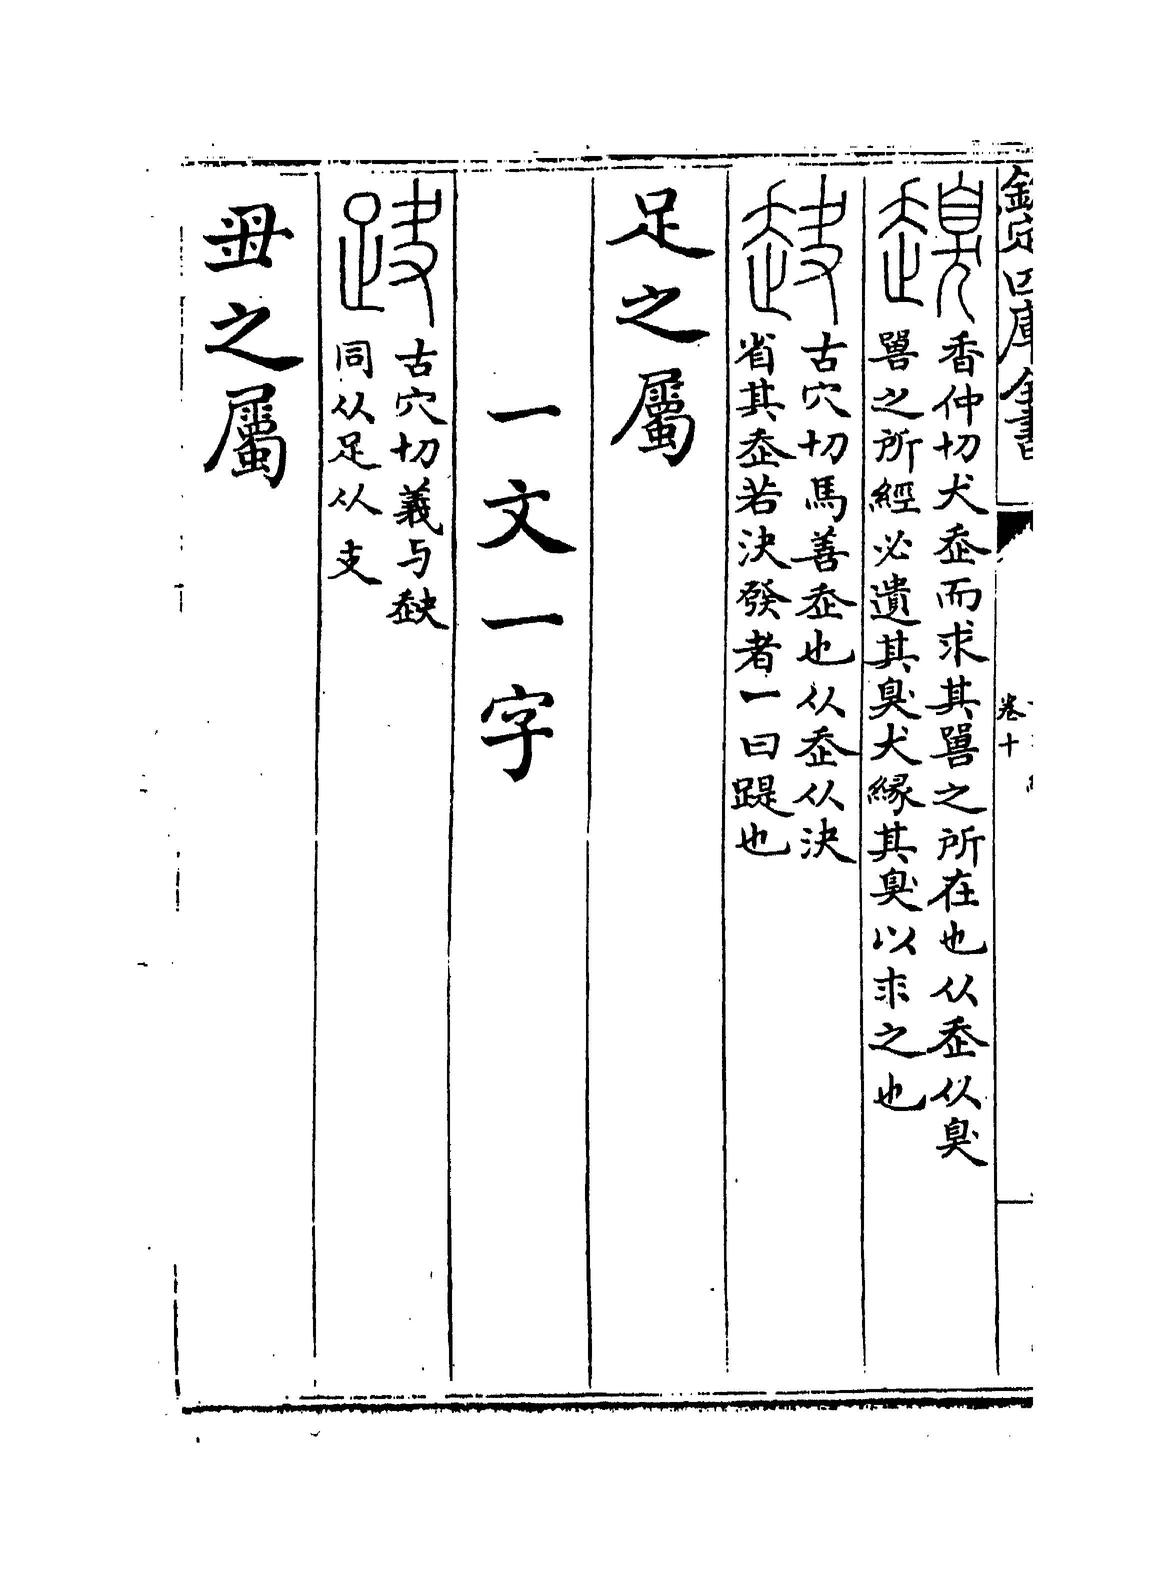 欽定四庫全書
卷十
香仲切犬走而求其嘼之所在也从走从臭
嘼之所經必遺其臭犬緣其臭以求之也
古穴切馬善走也从走从決
省其走若決發者一曰踶也
足之屬
一文一字
古穴切義与赽
同从足从支
冊之屬